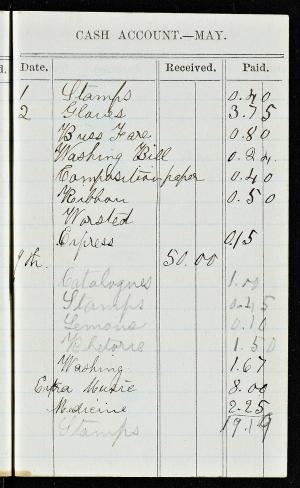 CASH ACCOUNT.—MAY.
Date. Received. Paid.
1 Stamps 0.40
2 Gloves 3.75
Buss Fare 0.80
Washing Bill 0.84
Composition paper 0.40
Ribbon 0.50
Worsted
Express 0,15
9th. 50.00
Catalogues 1.00
Stamps 0.25
Lemons 0.10
Rhetoric 1.50
Washing 1.67
Extra Music 8.00
Medicine 2.25
Stamps 19.19